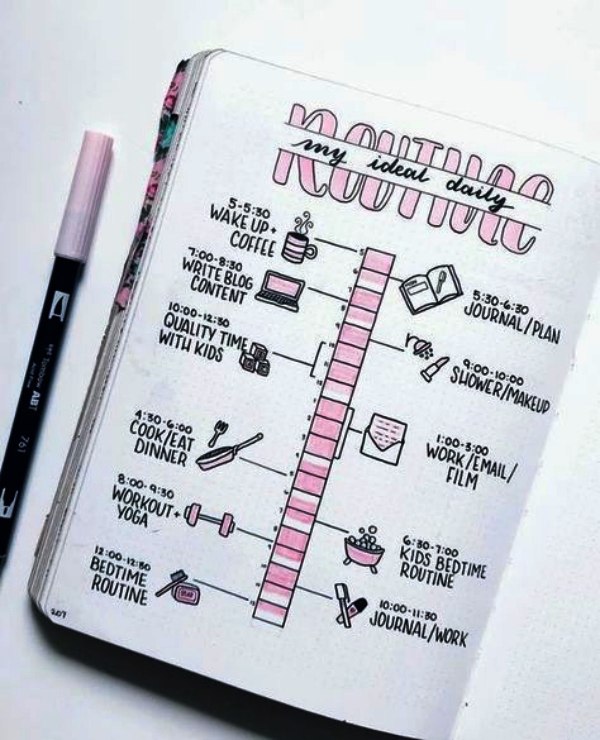 ROUTINE
my ideal daily
5-5:30
WAKE UP +
COFFEE
5:30-6:30
JOURNAL/PLAN
7:00-8:30
WRITE BLOG
CONTENT
9:00-10:00
SHOWER/MAKEUP
10:00-12:30
QUALITY TIME
WITH KIDS
1:00-3:00
WORK/EMAIL/
FILM
4:30-6:00
COOK/EAT
DINNER
6:30-7:00
KIDS BEDTIME
ROUTINE
8:00-9:30
WORKOUT +
YOGA
10:00-11:30
JOURNAL/WORK
12:00-12:30
BEDTIME
ROUTINE
207
Tombow ABT
761